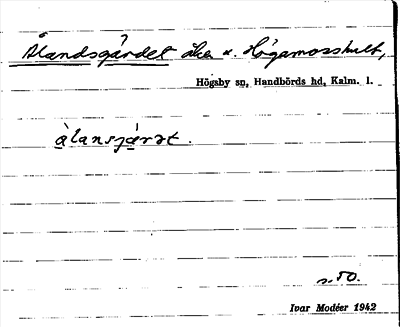 Ålandsgärdet åker u. Högamosshult,
Högsby sn, Handbörds hd, Kalm. l.
àlansjærət.
s. 50.
Ivar Modéer 1942